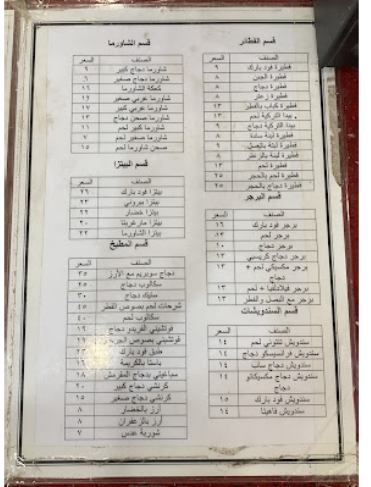 قسم الفطائر
الصنف السعر
فطيرة فود بارك ٩
فطيرة الجبن ٨
فطيرة دجاج ٨
فطيرة زعتر ٨
فطيرة كباب بالفطر ١٣
بيدا التركية لحم ١٣
بيدا التركية دجاج ٩
فطيرة لبنة سادة ٨
فطيرة لبنة بالعسل ٩
فطيرة لبنة بالزعتر ٨
فطيرة لحم ١٣
فطيرة لحم بالحجر ٢٥
فطيرة دجاج بالحجر ٢٥
قسم البرجر
الصنف السعر
برجر فود بارك ١٦
برجر لحم ١٣
برجر دجاج ١٠
برجر دجاج كريسبي ١٣
برجر مكسيكي لحم + دجاج ١٣
برجر فيلادلفيا + لحم ١٣
برجر مع البصل والفطر ١٣
قسم السندويشات
الصنف السعر
سندويش لحم ١٤
سندويش فرانسيسكو دجاج ١٤
سندويش دجاج ساب ١٤
سندويش دجاج مكسيكانو دجاج ١٤
سندويش فود بارك ١٥
سندويش فاهيتا ١٤
قسم الشاورما
الصنف السعر
شاورما دجاج كبير ٩
شاورما دجاج صغير ٦
كعكة الشاورما ١٦
شاورما عربي صغير ١٢
شاورما عربي كبير ١٧
شاورما صحن دجاج ١٣
شاورما كبير لحم ١١
شاورما صغير لحم ٧
صحن شاورما لحم ١٥
قسم البيتزا
الصنف السعر
بيتزا فود بارك ٢٦
بيتزا بيروني ٢٣
بيتزا خضار ٢٢
بيتزا مارغريتا ٢٠
بيتزا الشاورما ٢٢
قسم المطبخ
الصنف السعر
دجاج سوبريم مع الأرز ٣٥
سكالوب دجاج ٢٥
ستيك دجاج ٣٠
شرحات لحم بصوص الفطر ٤٥
سكالوب لحم ٤٠
فوتشيني الفريدو دجاج ١٩
فوتشيني بصوص ١٩
طبق فود بارك ٢٣
باستا بالكريمة ١٨
سباغيتي بدجاج المقرمش ١٨
كرنشي دجاج كبير ٢٠
كرنشي دجاج صغير ١٥
أرز بالخضار ٨
أرز بالزعفران ٨
شوربة عدس ٧